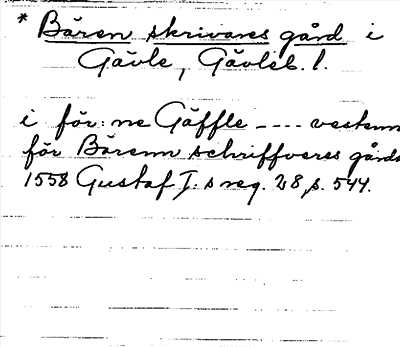 * Bären skrivares gård i
Gävle, Gävleb. l.
i för:ne Gäffle ---- vestenn
för Bärenn schriffveres gårds
1558 Gustaf I:s reg. 28, s. 544.